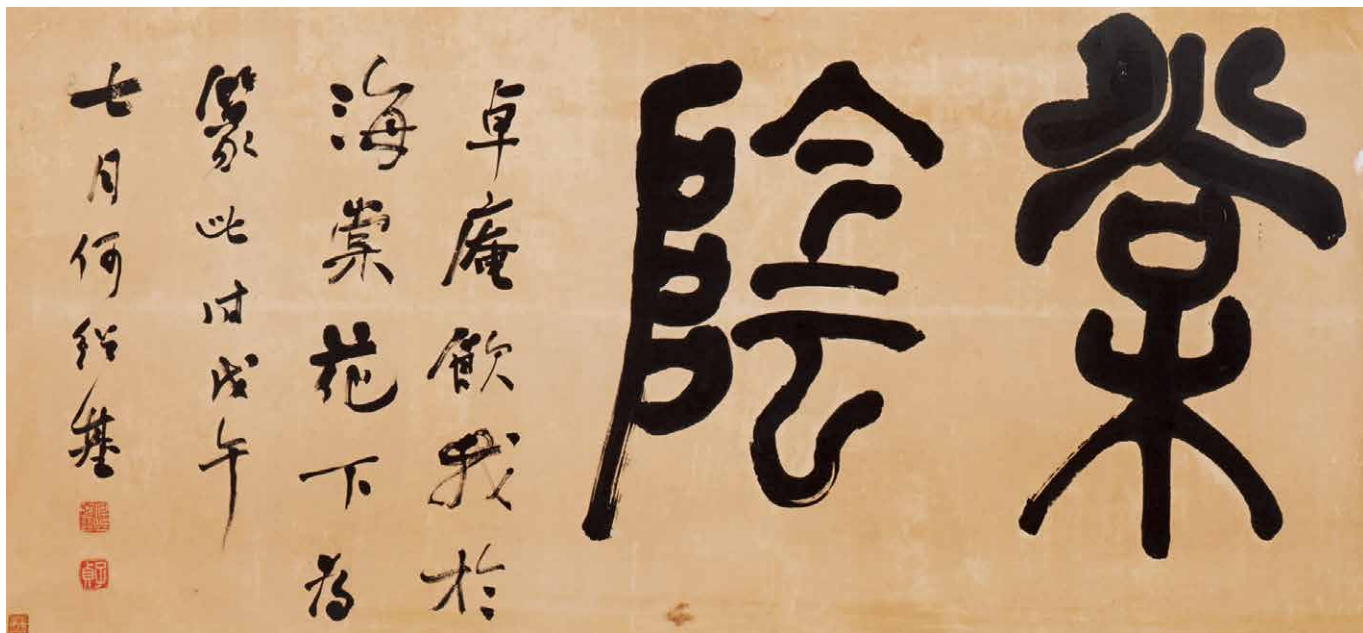 棠陰
卓庵飲我於
海棠花下為
篆此時戊午
七月何紹基
子貞